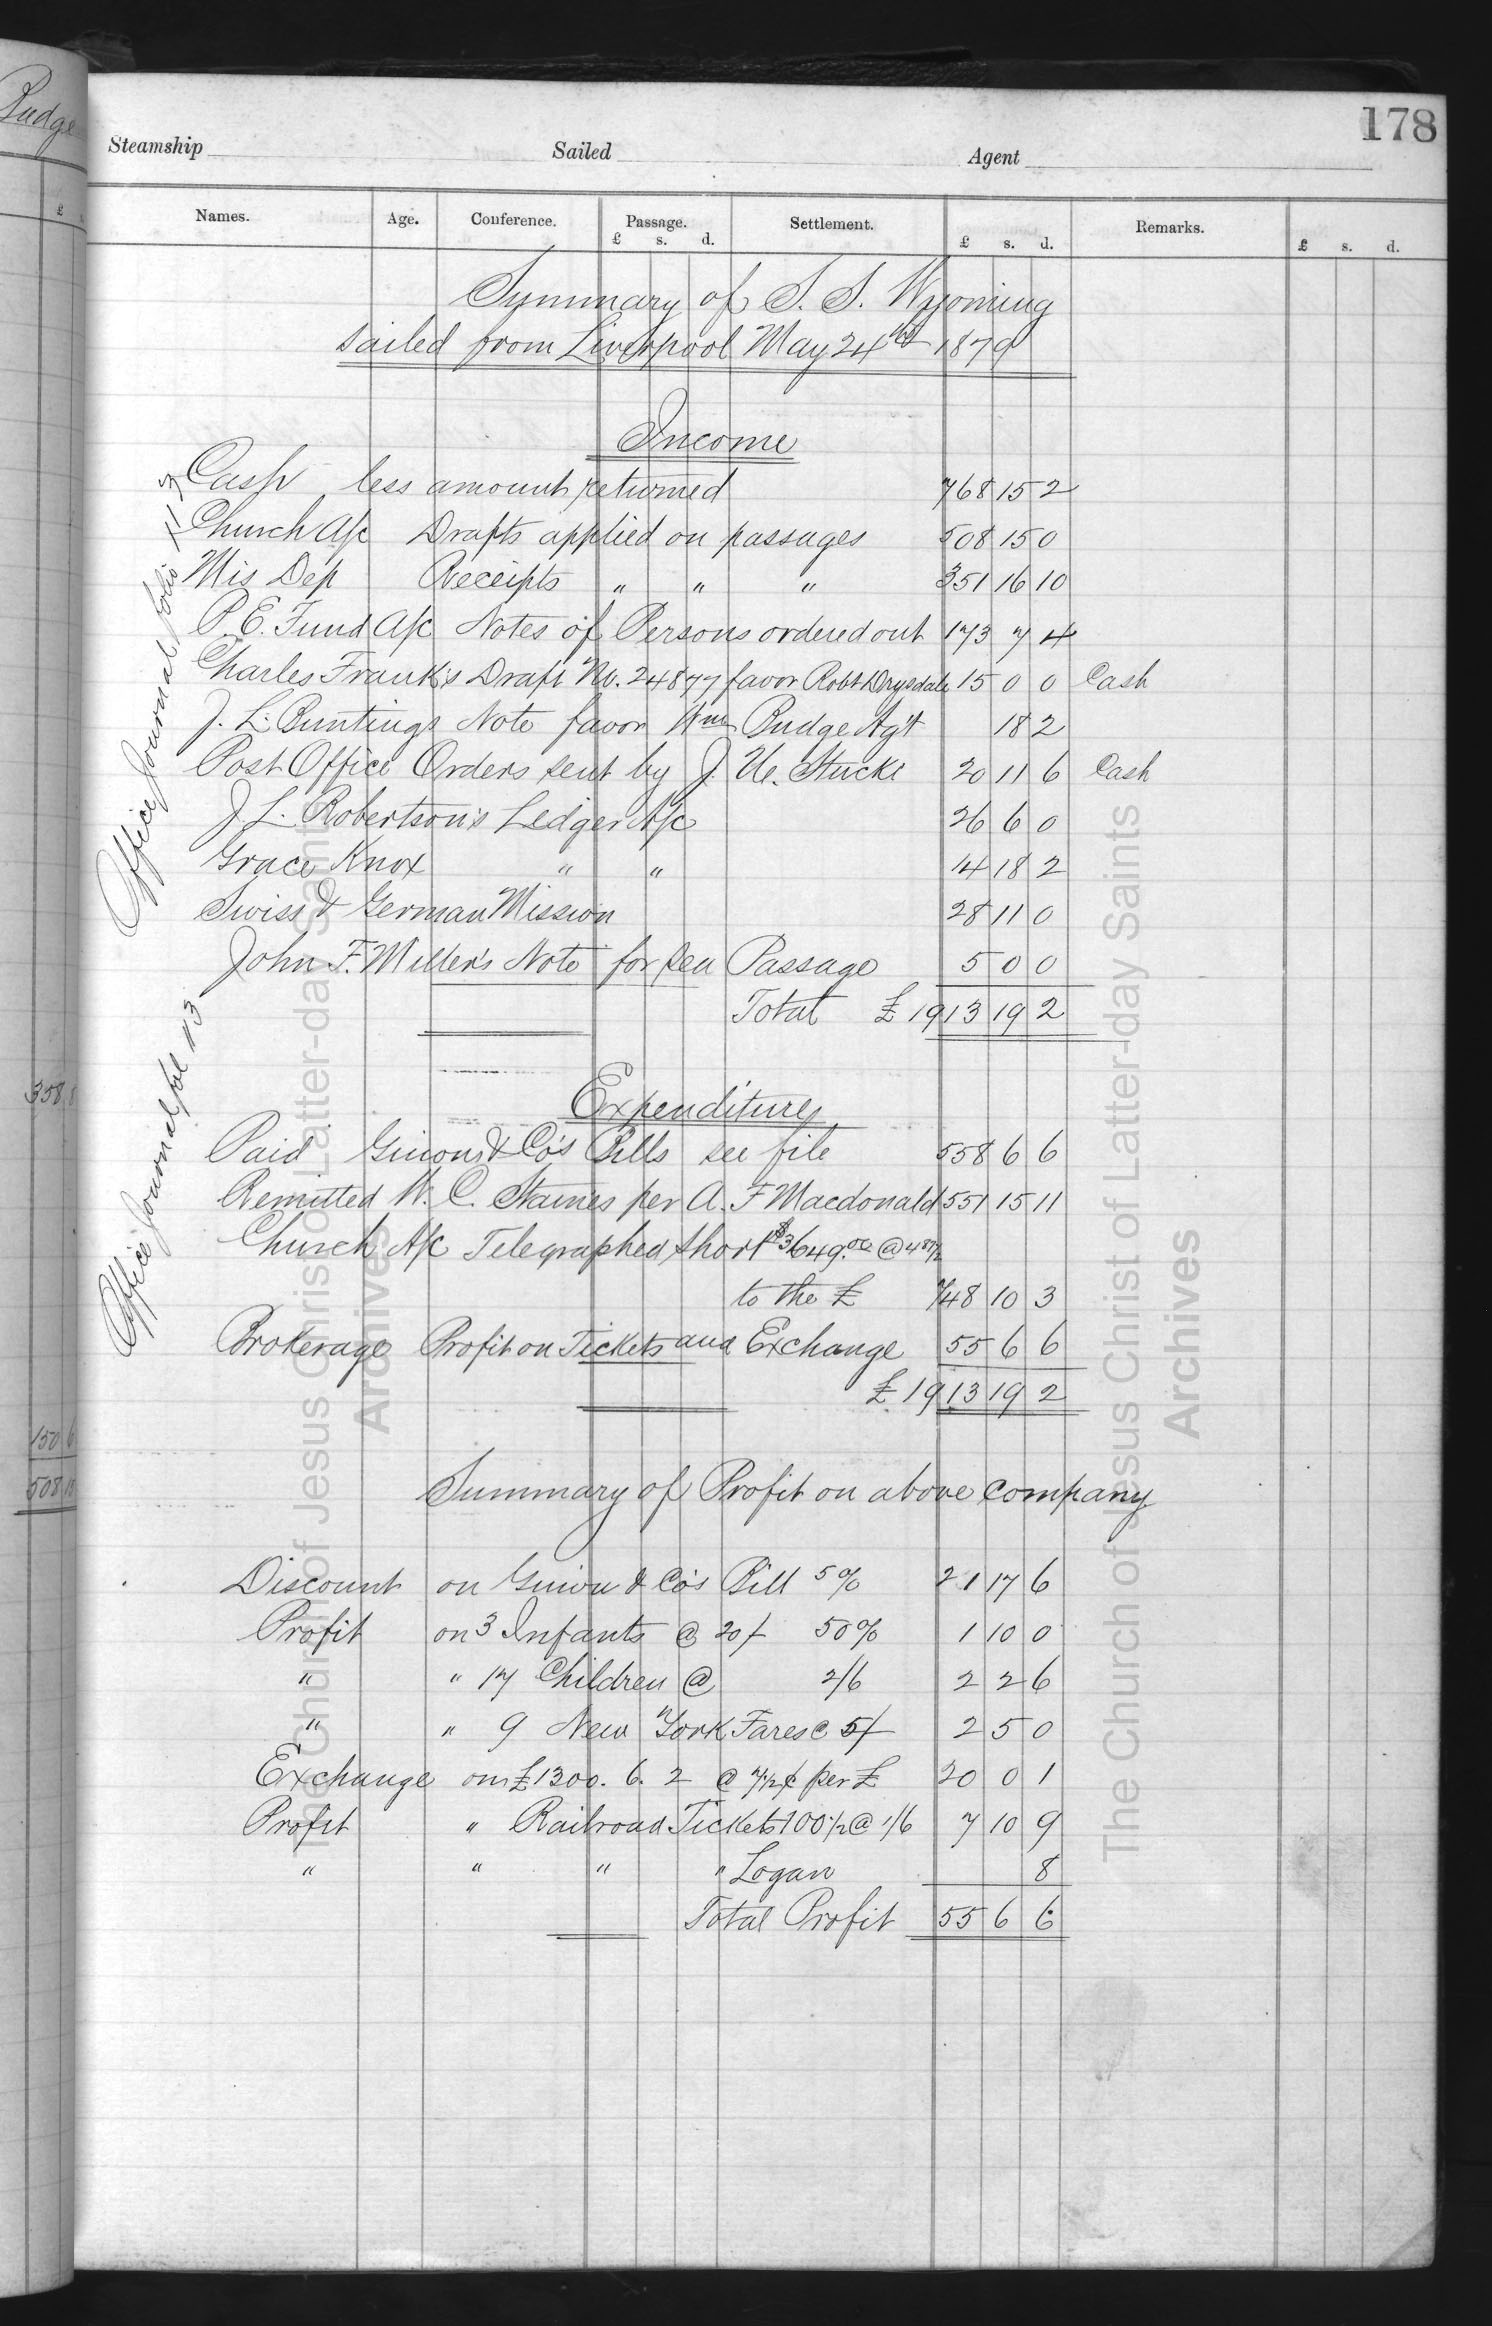 178
Steamship Sailed Agent
Names. Age. Conference. Passage. £ s. d. Settlement. £ s. d. Remarks. £ s. d.
Summary of S. S. Wyoming
sailed from Liverpool May 24th 1879
Income
Cash less amount returned 768 15 2
Church A/c Drafts applied on passages 508 15 0
Mis Dep Receipts " " " 351 16 10
P. E. Fund A/c Notes of Persons ordered out 173 7 4
Charles Frank's Draft No. 24877 favor Robt Drysdale 15 0 0 Cash
J. L. Buntings Note favor Wm Budge Agt 18 2
Post Office Orders sent by J. U. Stucki 20 11 6 Cash
J. L. Robertson's Ledger A/c 26 6 0
Grace Knox " " 4 18 2
Swiss & German Mission 28 11 0
John F. Miller's Note for sea Passage 5 0 0
Total £ 1913 19 2
Office Journal folio 113
Expenditure
Paid Guion & Co's Bills see file 558 6 6
Remitted W. C. Staines per A. F Macdonald 551 15 11
Church A/c Telegraphed short $3649.00 @ 4 87 1/2
to the £ 748 10 3
Brokerage Profit on Tickets and Exchange 55 6 6
£ 1913 19 2
Office Journal fol 113
Summary of Profit on above company
Discount on Guion & Co's Bill 5% 21 17 6
Profit on 3 Infants @ 20/ 50% 1 10 0
" " 17 Children @ 2/6 2 2 6
" " 9 New York Fares @ 5/ 2 5 0
Exchange on £1300. 6. 2 @ 7 1/2¢ per £ 20 0 1
Profit " Railroad Tickets 100 1/2 @ 1/6 7 10 9
" " " " Logan 8
Total Profit 55 6 6
Budge
£ s.
358 8
150 6
508 15
The Church of Jesus Christ of Latter-day Saints
Archives
The Church of Jesus Christ of Latter-day Saints
Archives